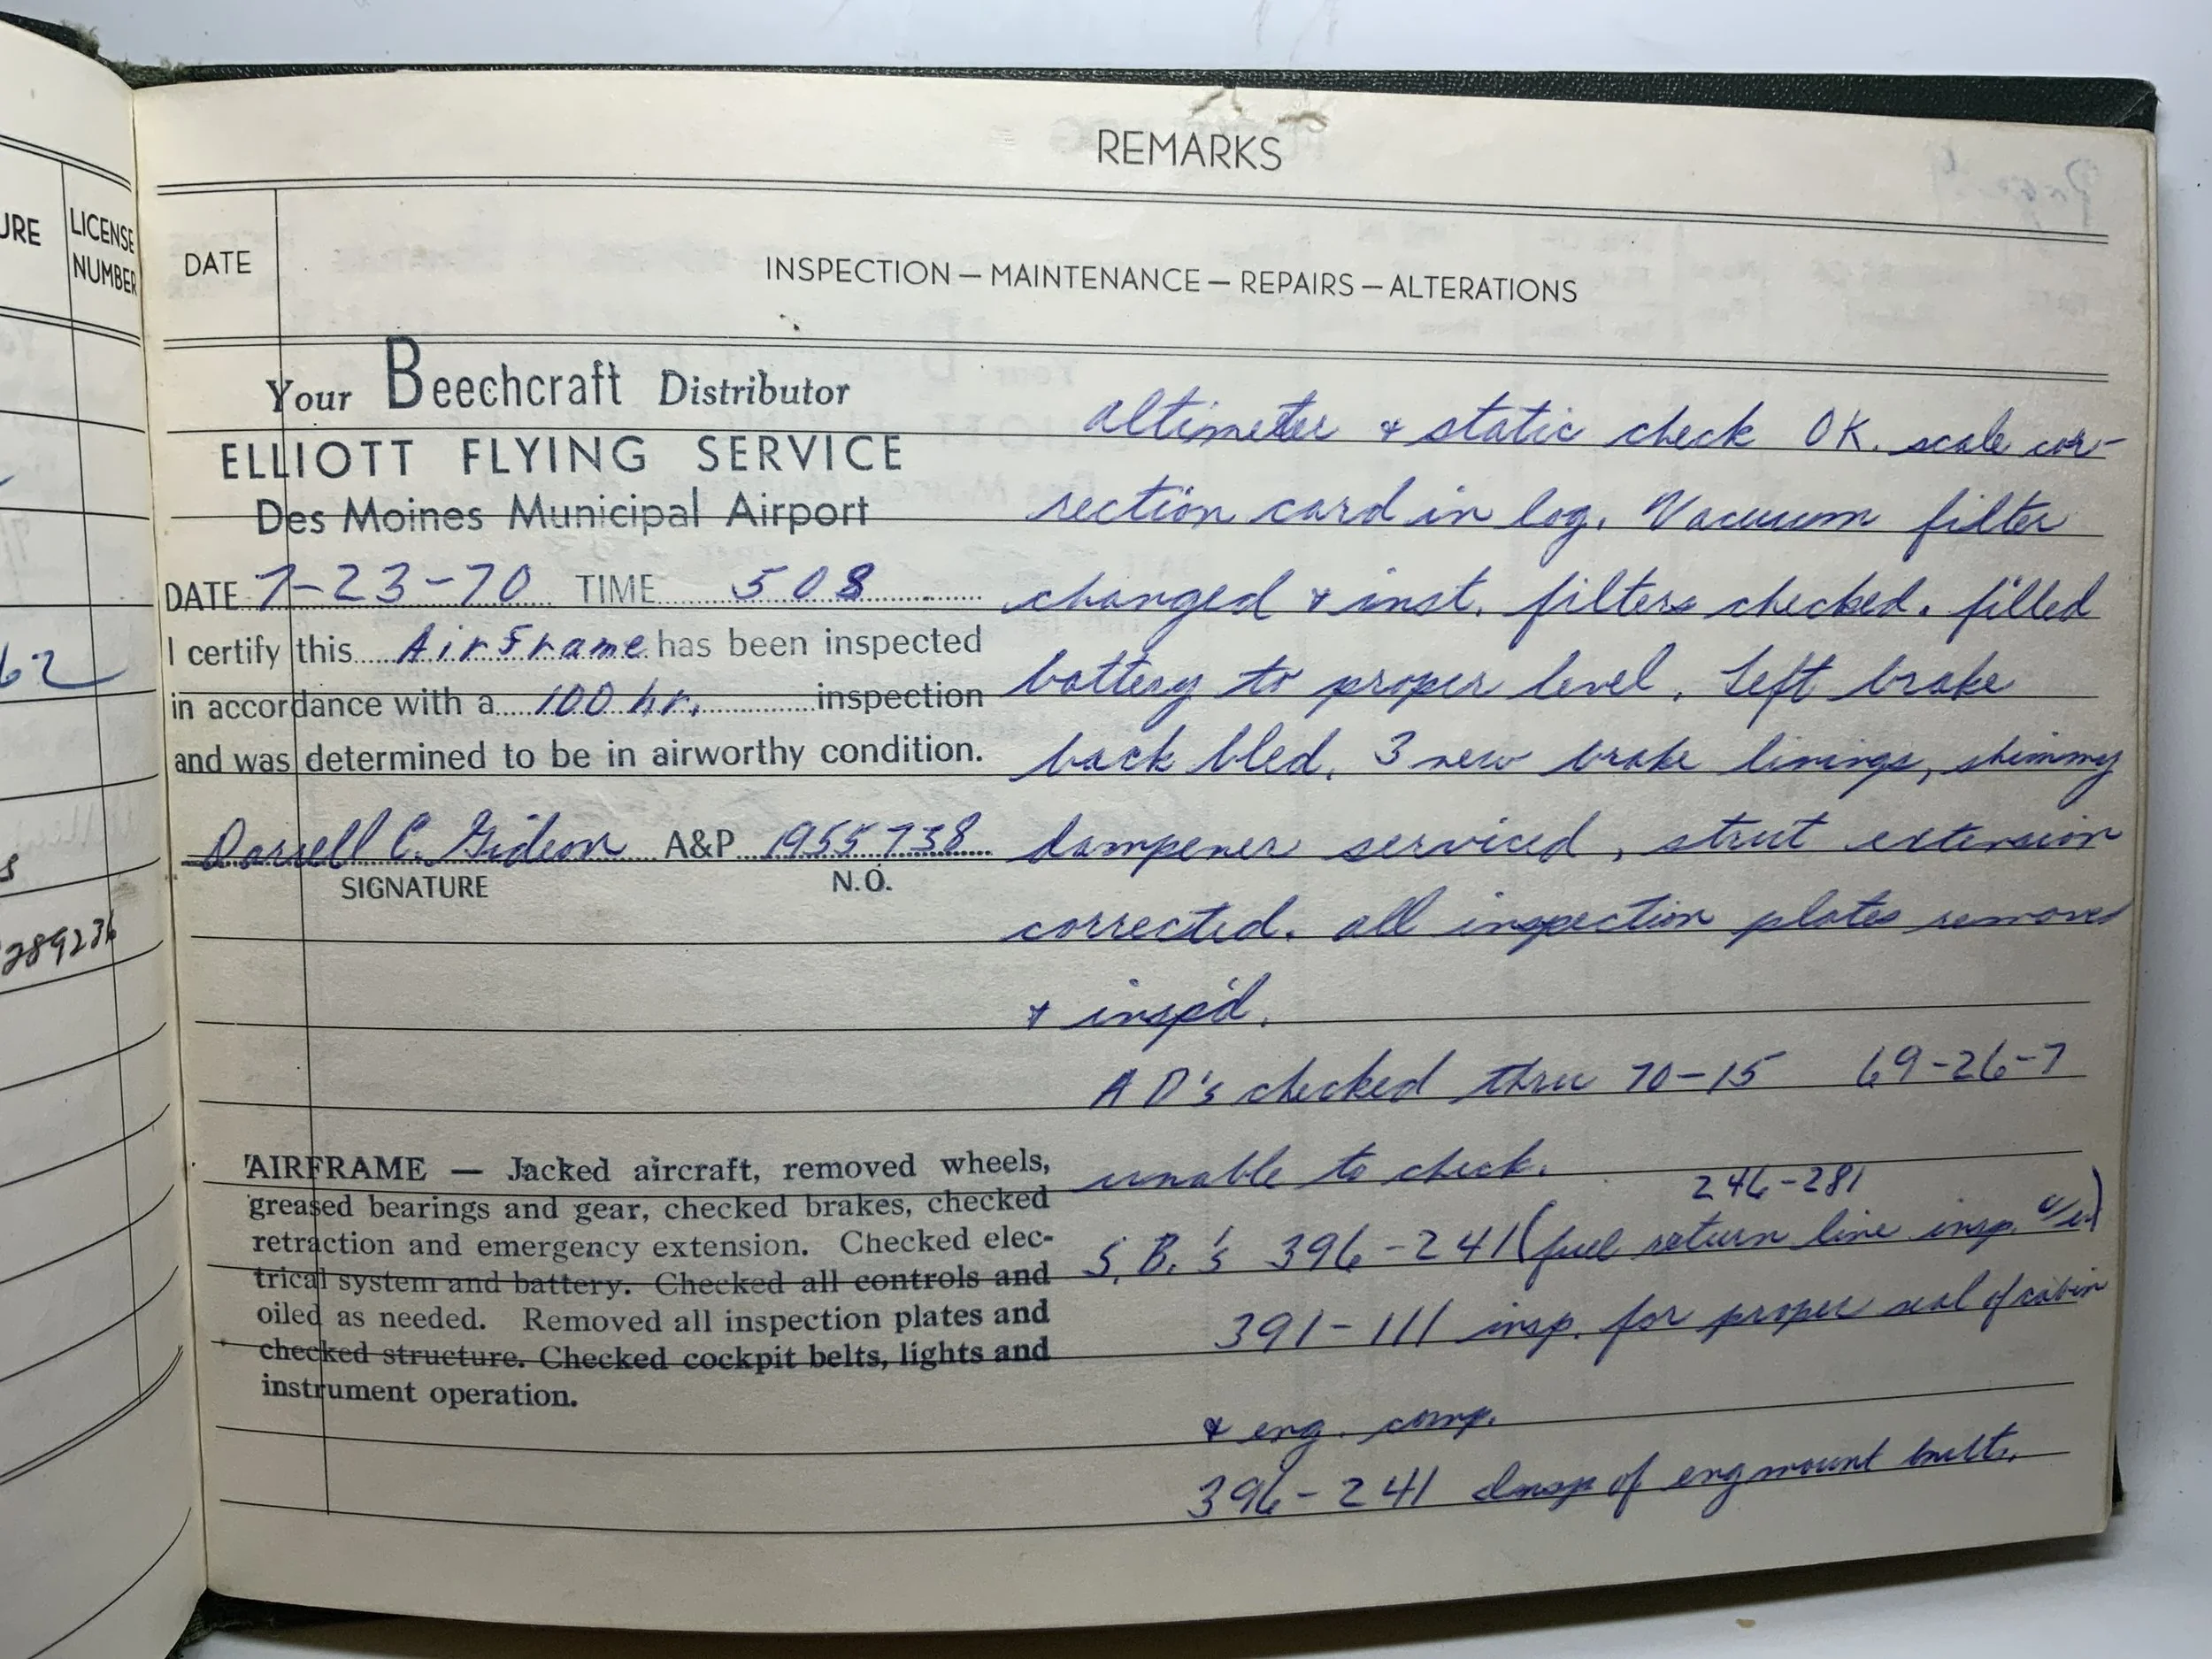 URE
LICENSE
NUMBER
62
s
289236
REMARKS
DATE
INSPECTION — MAINTENANCE — REPAIRS — ALTERATIONS
Your Beechcraft Distributor
ELLIOTT FLYING SERVICE
Des Moines Municipal Airport
DATE 7-23-70 TIME 508
I certify this Airframe has been inspected
in accordance with a 100 hr. inspection
and was determined to be in airworthy condition.
Darrell C. Gideon A&P 1955738
SIGNATURE N.O.
AIRFRAME — Jacked aircraft, removed wheels,
greased bearings and gear, checked brakes, checked
retraction and emergency extension. Checked elec-
trical system and battery. Checked all controls and
oiled as needed. Removed all inspection plates and
checked structure. Checked cockpit belts, lights and
instrument operation.
altimeter & static check OK. scale cor-
rection card in log. Vacuum filter
changed & inst. filters checked. filled
battery to proper level. Left brake
back bled. 3 new brake linings, shimmy
dampener serviced, strut extension
corrected. all inspection plates removed
& insp'd.
AD's checked thru 70-15 69-26-7
unable to check.
246-281
S.B.'s 396-241 (fuel return line insp.
391-111 insp. for proper seal of cabin
& eng. comp.
396-241 Insp of eng mount bolts.